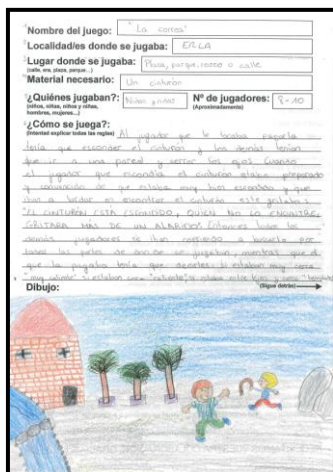 Nombre del juego: "La correa"
Localidad/es donde se jugaba: ERLA
Lugar donde se jugaba: Plaza, parque, corro o calle
(calle, era, plaza, parque...)
Material necesario: Un cinturón
¿Quiénes jugaban?: Niños y niñas Nº de jugadores: 8-10
(niños, niñas, niños y niñas, hombres, mujeres...) (Aproximadamente)
¿Cómo se juega?:
(Intentad explicar todas las reglas) Al jugador que le tocaba pagarla
tenía que esconder el cinturón y los demás tenían
que ir a una pared y cerrar los ojos. Cuando
el jugador que escondía el cinturón estaba preparado
y convencido de que estaba muy bien escondido y que
iban a tardar en encontrar el cinturón este gritaba:
"EL CINTURÓN ESTÁ ESCONDIDO, QUIEN NO LO ENCUENTRE,
GRITARÁ MÁS DE UN ALARIDO". Entonces todos los
demás jugadores se iban corriendo a buscarlo por
todas las partes de donde se jugaban, mientras que el
que la pagaba tenía que decirles: si estaban muy cerca
"muy caliente" si estaban cerca "caliente", si estaban
Dibujo:
(Sigue detrás)